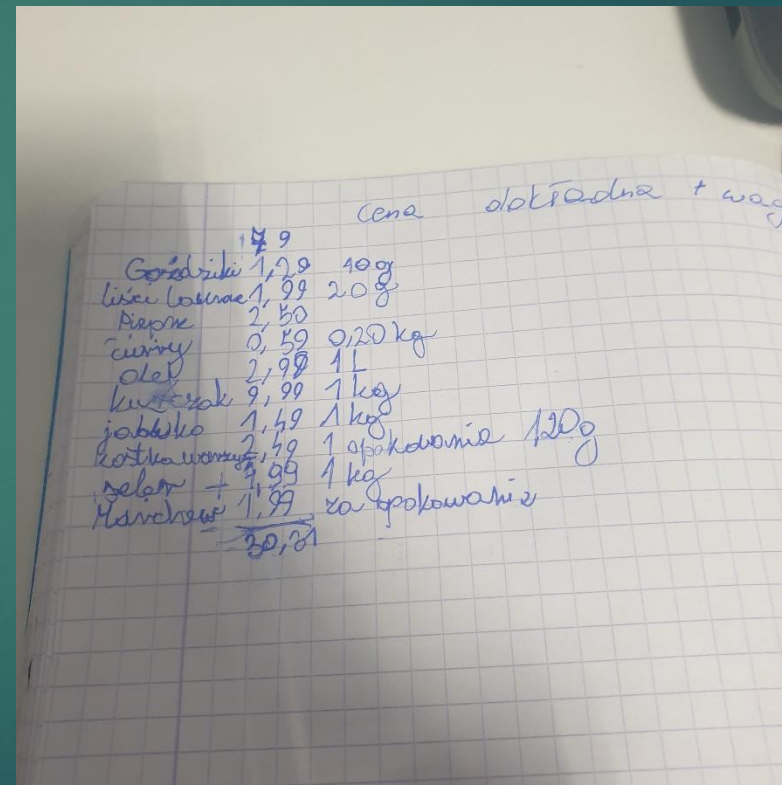 cena dokładna + wag
79
Goździki 1,29 40g
liście laurowe 1,99 20g
Pieprz 2,50
0,59 0,20 kg
olej 2,98 1L
kurczak 9,99 1 kg
jabłko 1,49 1 kg
kostka warzyw 2,49 1 opakowania 120g
seler + 1,99 1 kg
Marchew 1,99 za opakowania
30,31